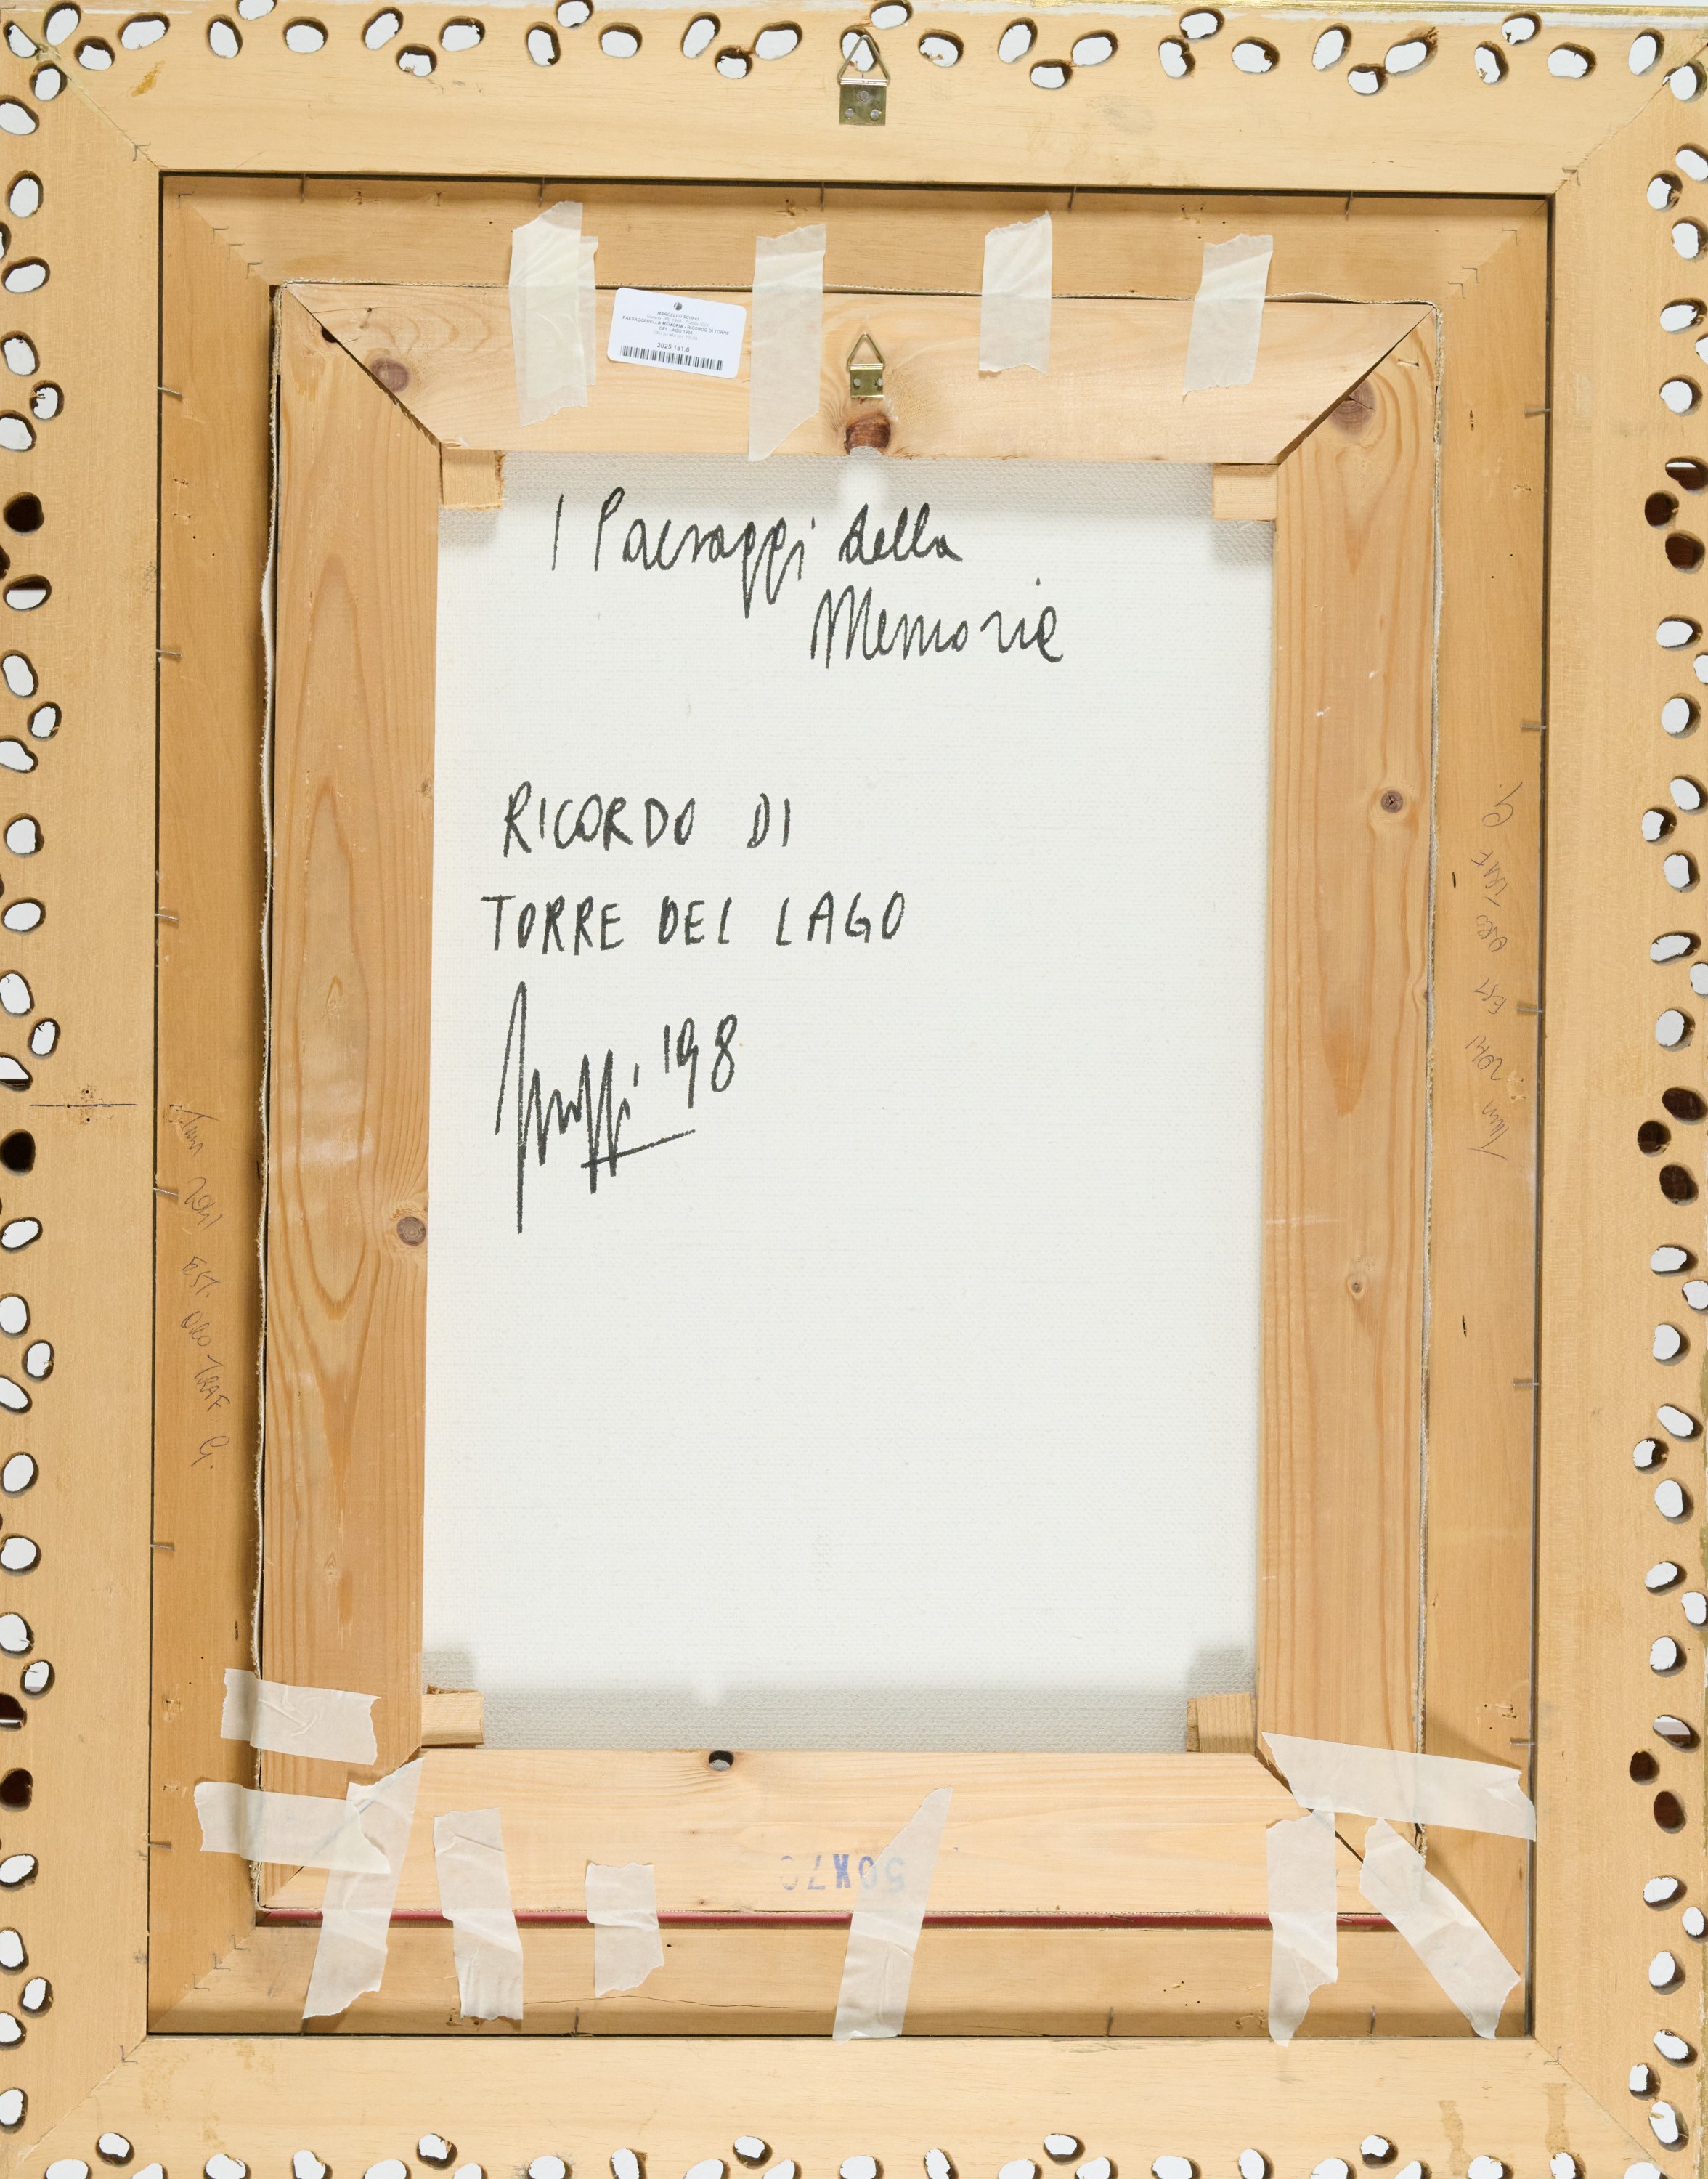 MARCELLO SCUFFI
PAESAGGI DELLA MEMORIA - RICORDO DI TORRE
DEL LAGO 1998
2025.191.6
I Paesaggi della
Memoria
RICORDO DI
TORRE DEL LAGO
Scuffi '98
50X70
EST. ORO TRAF G.
EST ORO TRAF G.